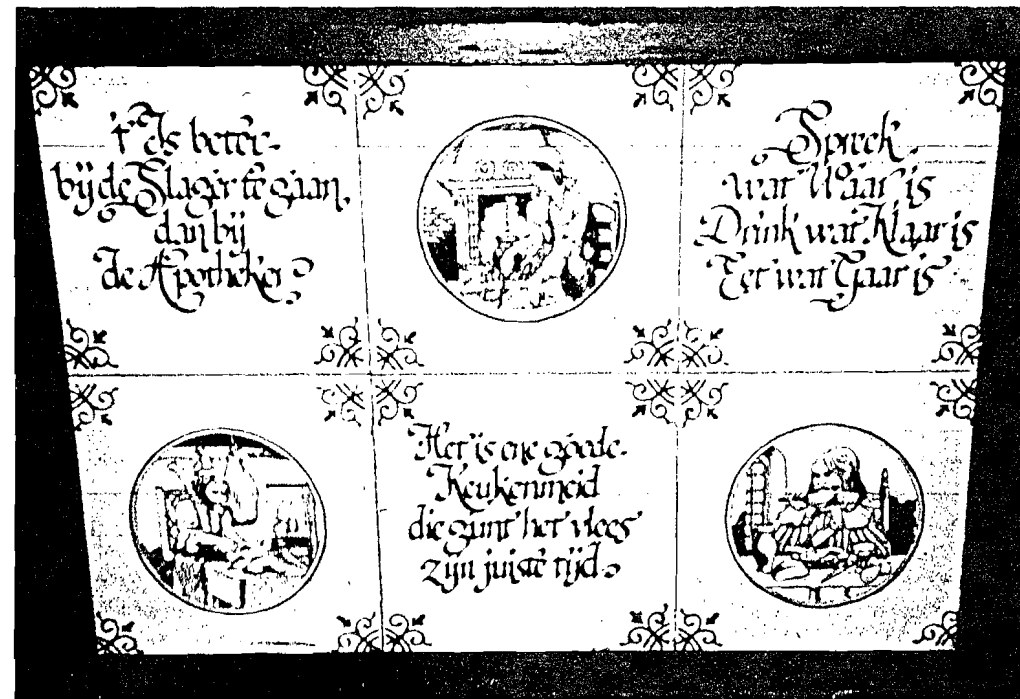 't Is beter
bij de Slager te gaan,
dan bij
de Apotheker
Spreek
wat Waar is
Drink wat Klaar is
Eet wat Gaar is
Het is ene goede
Keukenmeid
die gunt het vlees
zijn juiste tijd